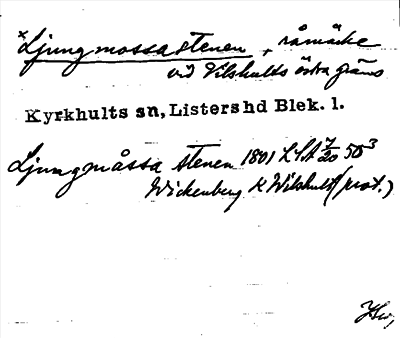 *Ljungmossastenen, råmärke
vid Vilshults östra gräns
Kyrkhults sn, Listers hd Blek. l.
Ljungmåssa stenen 1801 LSA 7/20 50³
Wickenberg K Wilshult (prot.)